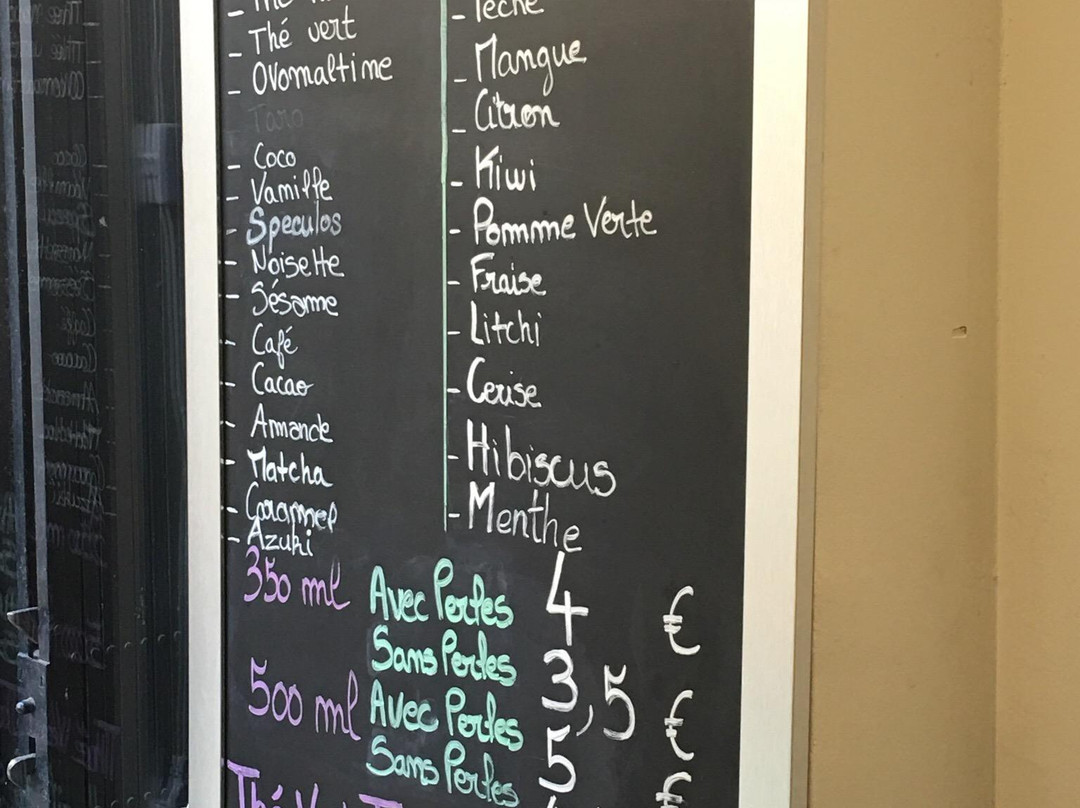 - Thé vert
- Ovomaltime
Taro
- Coco
- Vamille
- Speculos
- Noisette
- Sésame
- Café
- Cacao
- Amande
- Matcha
- Caramel
- Azuki
- Mangue
- Citron
- Kiwi
- Pomme Verte
- Fraise
- Litchi
- Cerise
- Hibiscus
- Menthe
350 ml Avec Perles 4 €
Sans Perles 3,5 €
500 ml Avec Perles 5 €
Sans Perles